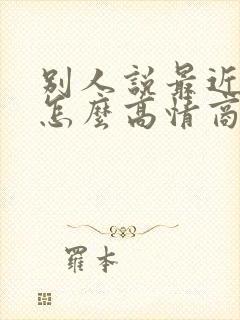 別人說最近
怎麼高情商
羅本